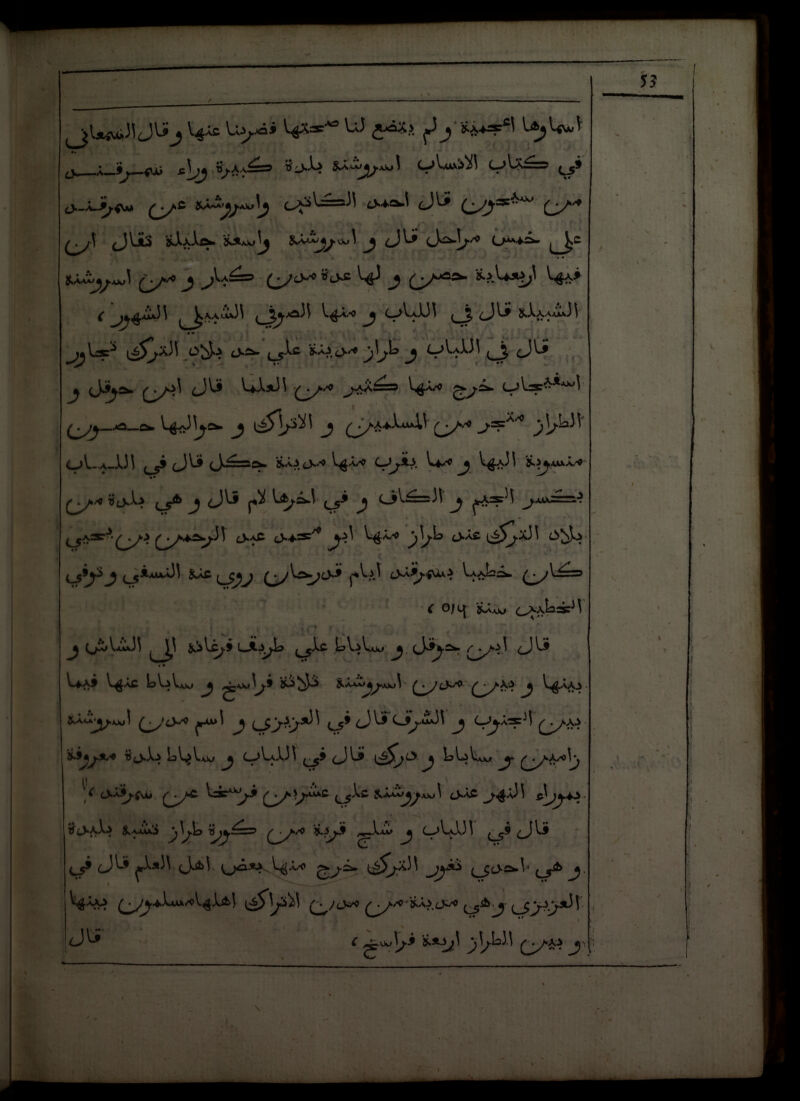 53
اسماوها اعجمية و لم يتضح لنا صحتها فضربنا عنها و قال السمعاني
في كتاب الانساب اسروشنة بلدة كبيرة وراء سمرقند
من سيحون قال احمد الكاتب واسروشنة عن سمرقند
على خمس مراحل قال و اسروشنة واسعة جليلة يقال ان
فيها اربعماية حصن و لها عدة مدن كبار و من اسروشنة
الشبلية قال في اللباب و منها الصوفي الشبلي المشهور
قال في اللباب و طراز مدينة على حد بلاد الترك تجاور
اسبيجاب خرج منها كثير من العلما قال ابن حوقل و
الطراز متجر من المسلمين و الاتراك و حواليها حصون
منسوبة اليها و مما يقرب منها مدينة جكل قال في اللباب
بكسر الجيم و الكاف و في اخرها لام قال و هي بلدة من
بلاد الترك عند طراز منها ابو محمد عبد الرحمن بن يحيى
كان خطيبا بسمرقند ايام قدرخان وروى عنه السمعاني وتوفي
الخطيب سنة ٥١٦
قال ابن حوقل و ساباط على طريق فرغانة الى الشاش و
بينها و بين مدينة اسروشنة ثلاثة فراسخ و ساباط عنها فيما
بين الجنوب و الشرق قال في العزيزي و اسم مدن اسروشنة
وامين و ساباط و دزك قال في اللباب و ساباط بلدة معروفة
بماوراء النهر عند اسروشنة على عشرين فرسخا من سمرقند
قال في اللباب و شلج قرية من كورة طراز تشبه بليدة
و هي احدى ثغور الترك خرج منها بعض اهل العلم قال في
العزيزي و هي مدينة من مدن الاتراك اهلها مسلمون بينها
و بين الطراز اربعة فراسخ
قال